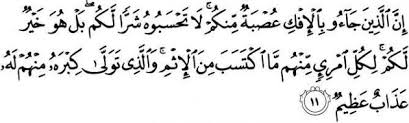 إِنَّ الَّذِينَ جَاءُو بِالْإِفْكِ عُصْبَةٌ مِّنكُمْ ۚ لَا تَحْسَبُوهُ شَرًّا لَّكُم ۖ بَلْ هُوَ خَيْرٌ
لَّكُمْ ۚ لِكُلِّ امْرِئٍ مِّنْهُم مَّا اكْتَسَبَ مِنَ الْإِثْمِ ۚ وَالَّذِي تَوَلَّىٰ كِبْرَهُ مِنْهُمْ لَهُ
عَذَابٌ عَظِيمٌ ﴿١١﴾